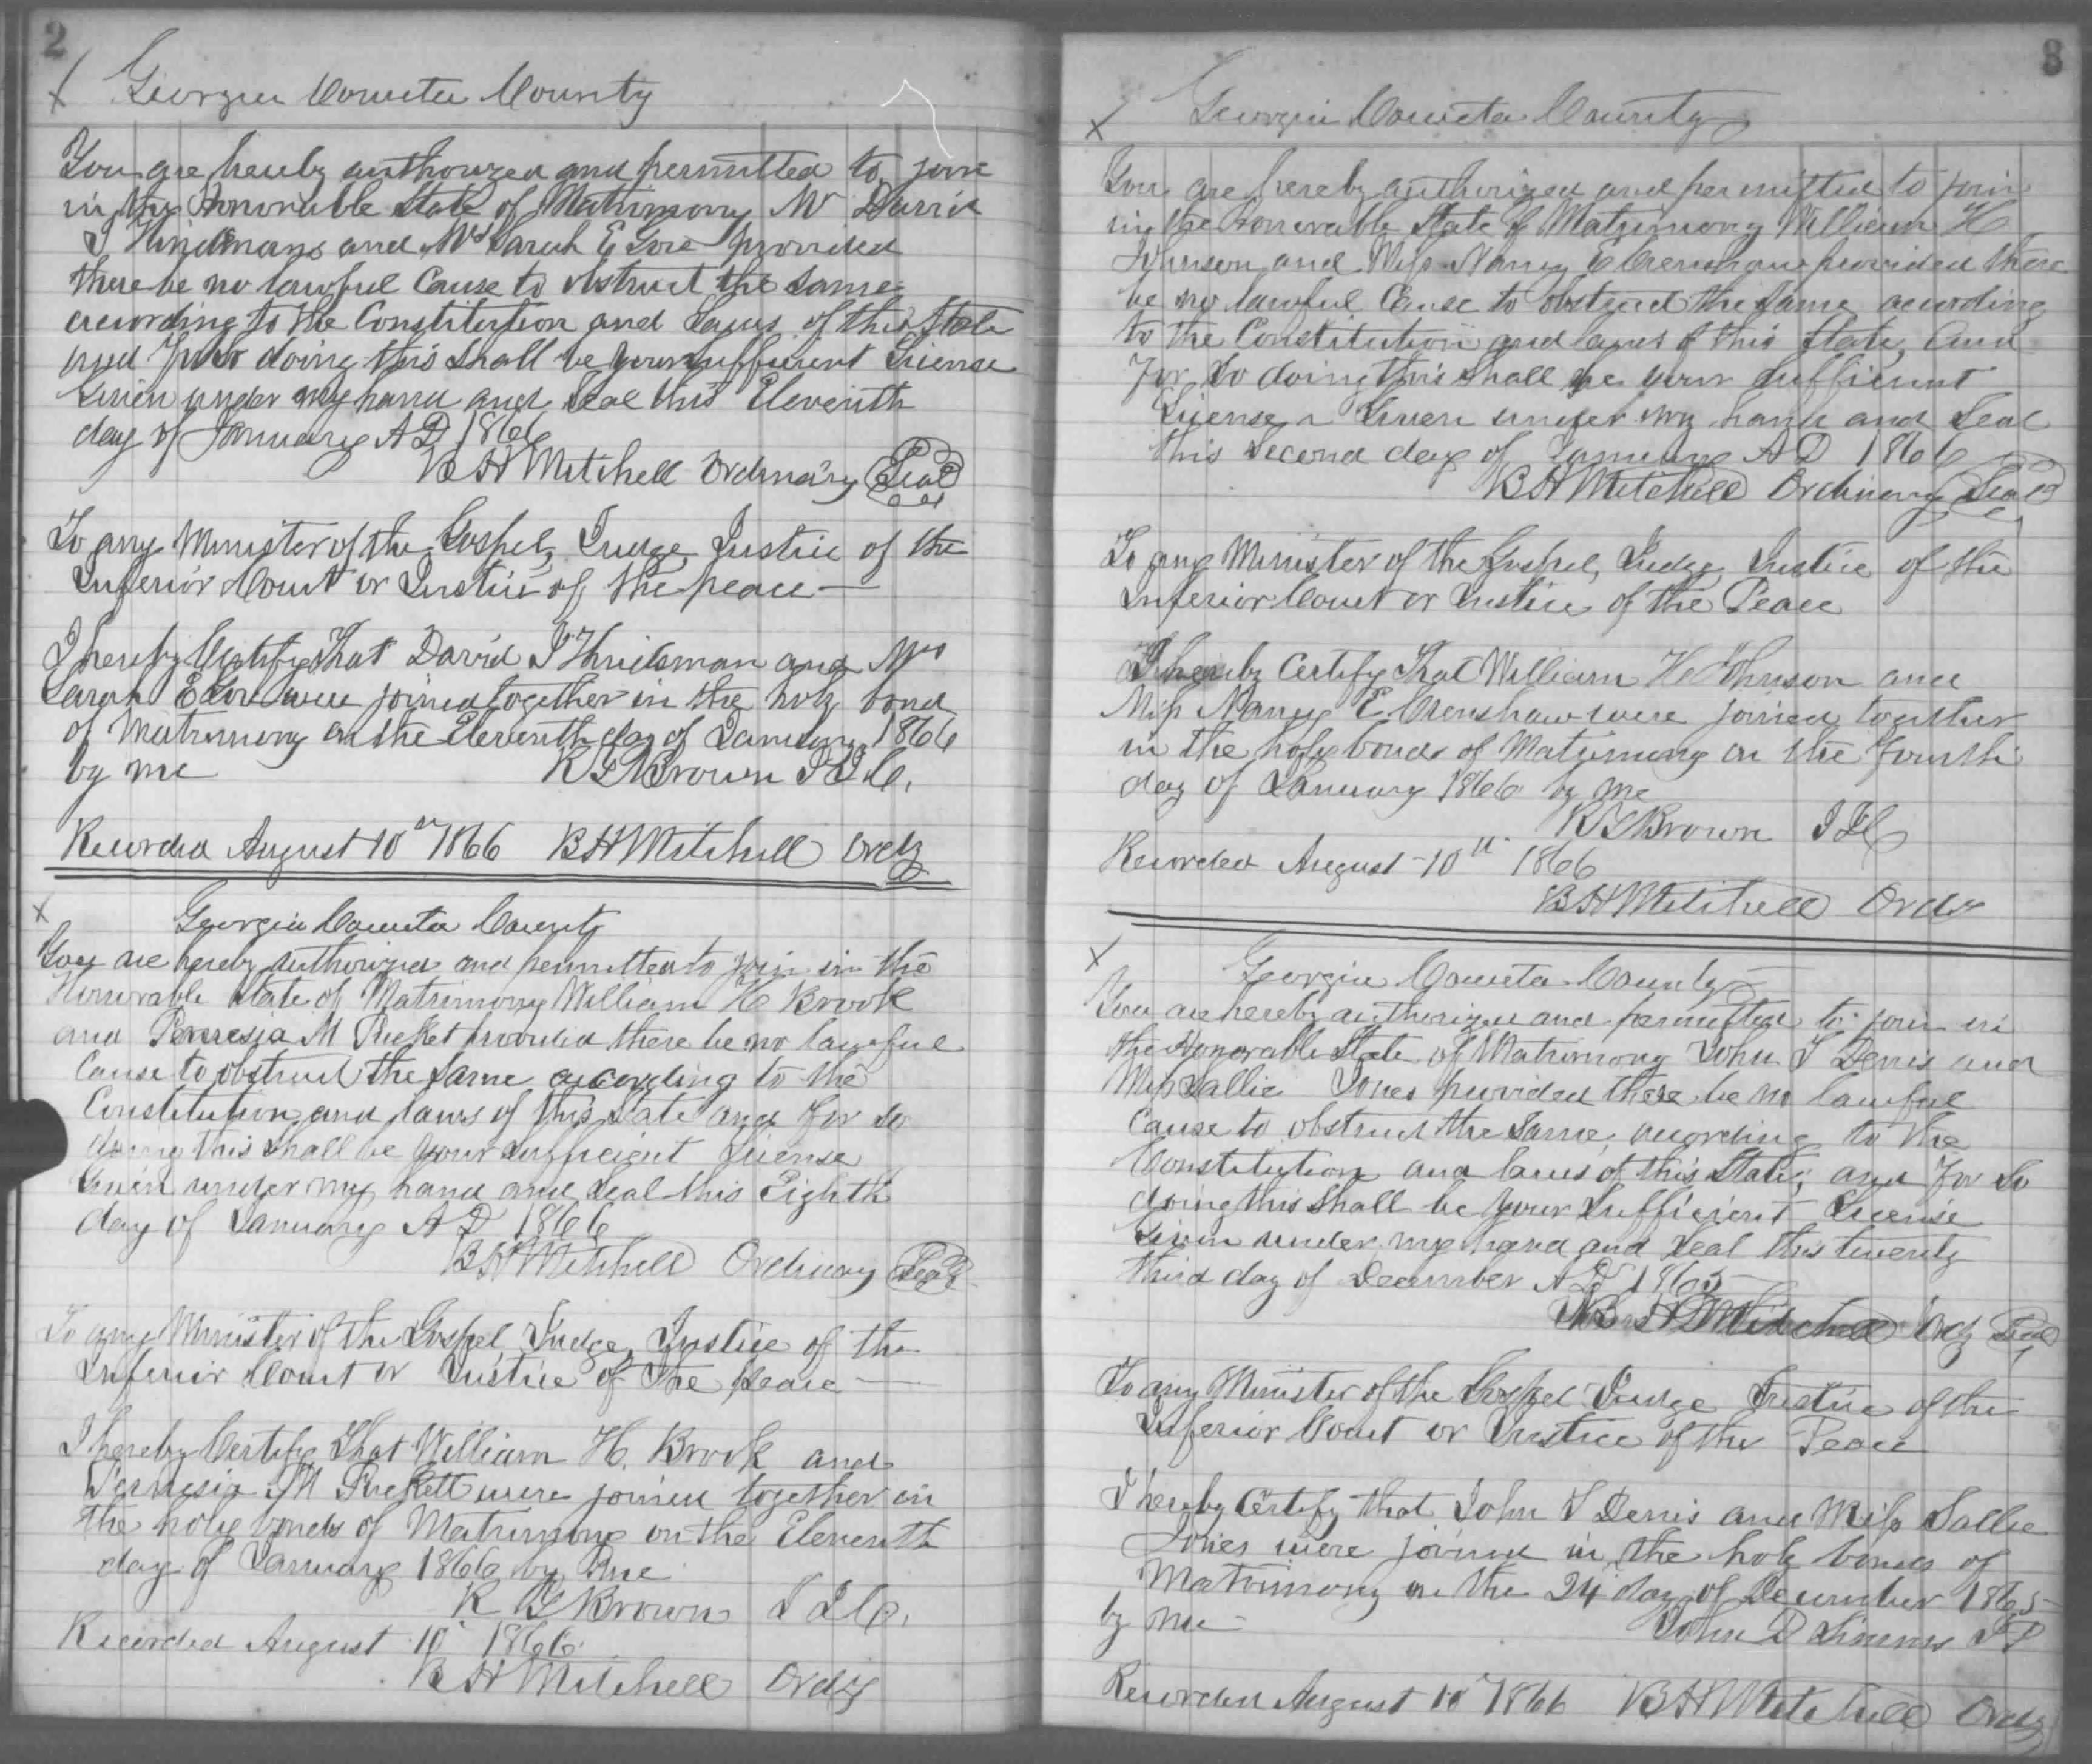 2
X Georgia Coweta County
You are hereby authorized and permitted to join
in the Honorable State of Matrimony Mr David
J Hindsman and Mrs Sarah E Gore provided
there be no lawful Cause to obstruct the same
according to the Constitution and Laws of this State
and for so doing this shall be your sufficient License
Given under my hand and Seal this Eleventh
day of January A D 1866
B H Mitchell Ordinary Seal
To any Minister of the Gospel, Judge, Justice of the
Inferior Court or Justice of the peace —
I hereby Certify That David J Hindsman and Mrs
Sarah E Gore were joined together in the holy bond
of Matrimony on the Eleventh day of January 1866
by me R Y Brown J I C.
Recorded August 10th 1866 B H Mitchell Ordy
X Georgia Coweta County
You are hereby authorized and permitted to join in the
Honorable State of Matrimony William H Brook
and M Pucket provided there be no lawful
Cause to obstruct the Same according to the
Constitution and laws of this State and for so
doing this shall be your sufficient license
Given under my hand and seal this Eighth
day of January A D 1866
B H Mitchell Ordinary Seal
To any Minister of the Gospel, Judge, Justice of the
Inferior Court or Justice of the peace —
I hereby Certify That William H. Brook and
M Puckett were joined together in
the holy bonds of Matrimony on the Eleventh
day of January 1866 by me
R Y Brown J I C.
Recorded August 10 1866
B H Mitchell Ordy
3
X Georgia Coweta County
You are hereby authorized and permitted to join
in the Honorable State of Matrimony William H
Johnson and Miss Nancy E Crenshaw provided there
be no lawful Cause to obstruct the Same according
to the Constitution and laws of this State, And
For So doing this shall be your sufficient
License Given under my hand and Seal
this Second day of January A D 1866
B H Mitchell Ordinary Seal
To any Minister of the Gospel, Judge, Justice of the
Inferior Court or Justice of the Peace
I hereby Certify That William H Johnson and
Miss Nancy E. Crenshaw were joined together
in the holy bonds of Matrimony on the fourth
day of January 1866 by me
R Y Brown J I C
Recorded August 10th 1866
B H Mitchell Ordy
X Georgia Coweta County
You are hereby authorized and permitted to join in
the Honorable State of Matrimony John T Denis and
Miss Sallie Jones provided there be no lawful
Cause to obstruct the Same, according to the
Constitution and laws of this State; and for So
doing this shall be your Sufficient License
Given under my hand and seal this twenty
third day of December A D 1865
B H Mitchell Ordy Seal
To any Minister of the Gospel Judge Justice of the
Inferior Court or Justice of the Peace
I hereby Certify that John T Denis and Miss Sallie
Jones were joined in the holy bonds of
Matrimony on the 24 day of December 1865
by me John D Simms J P
Recorded August 10th 1866 B H Mitchell Ordy